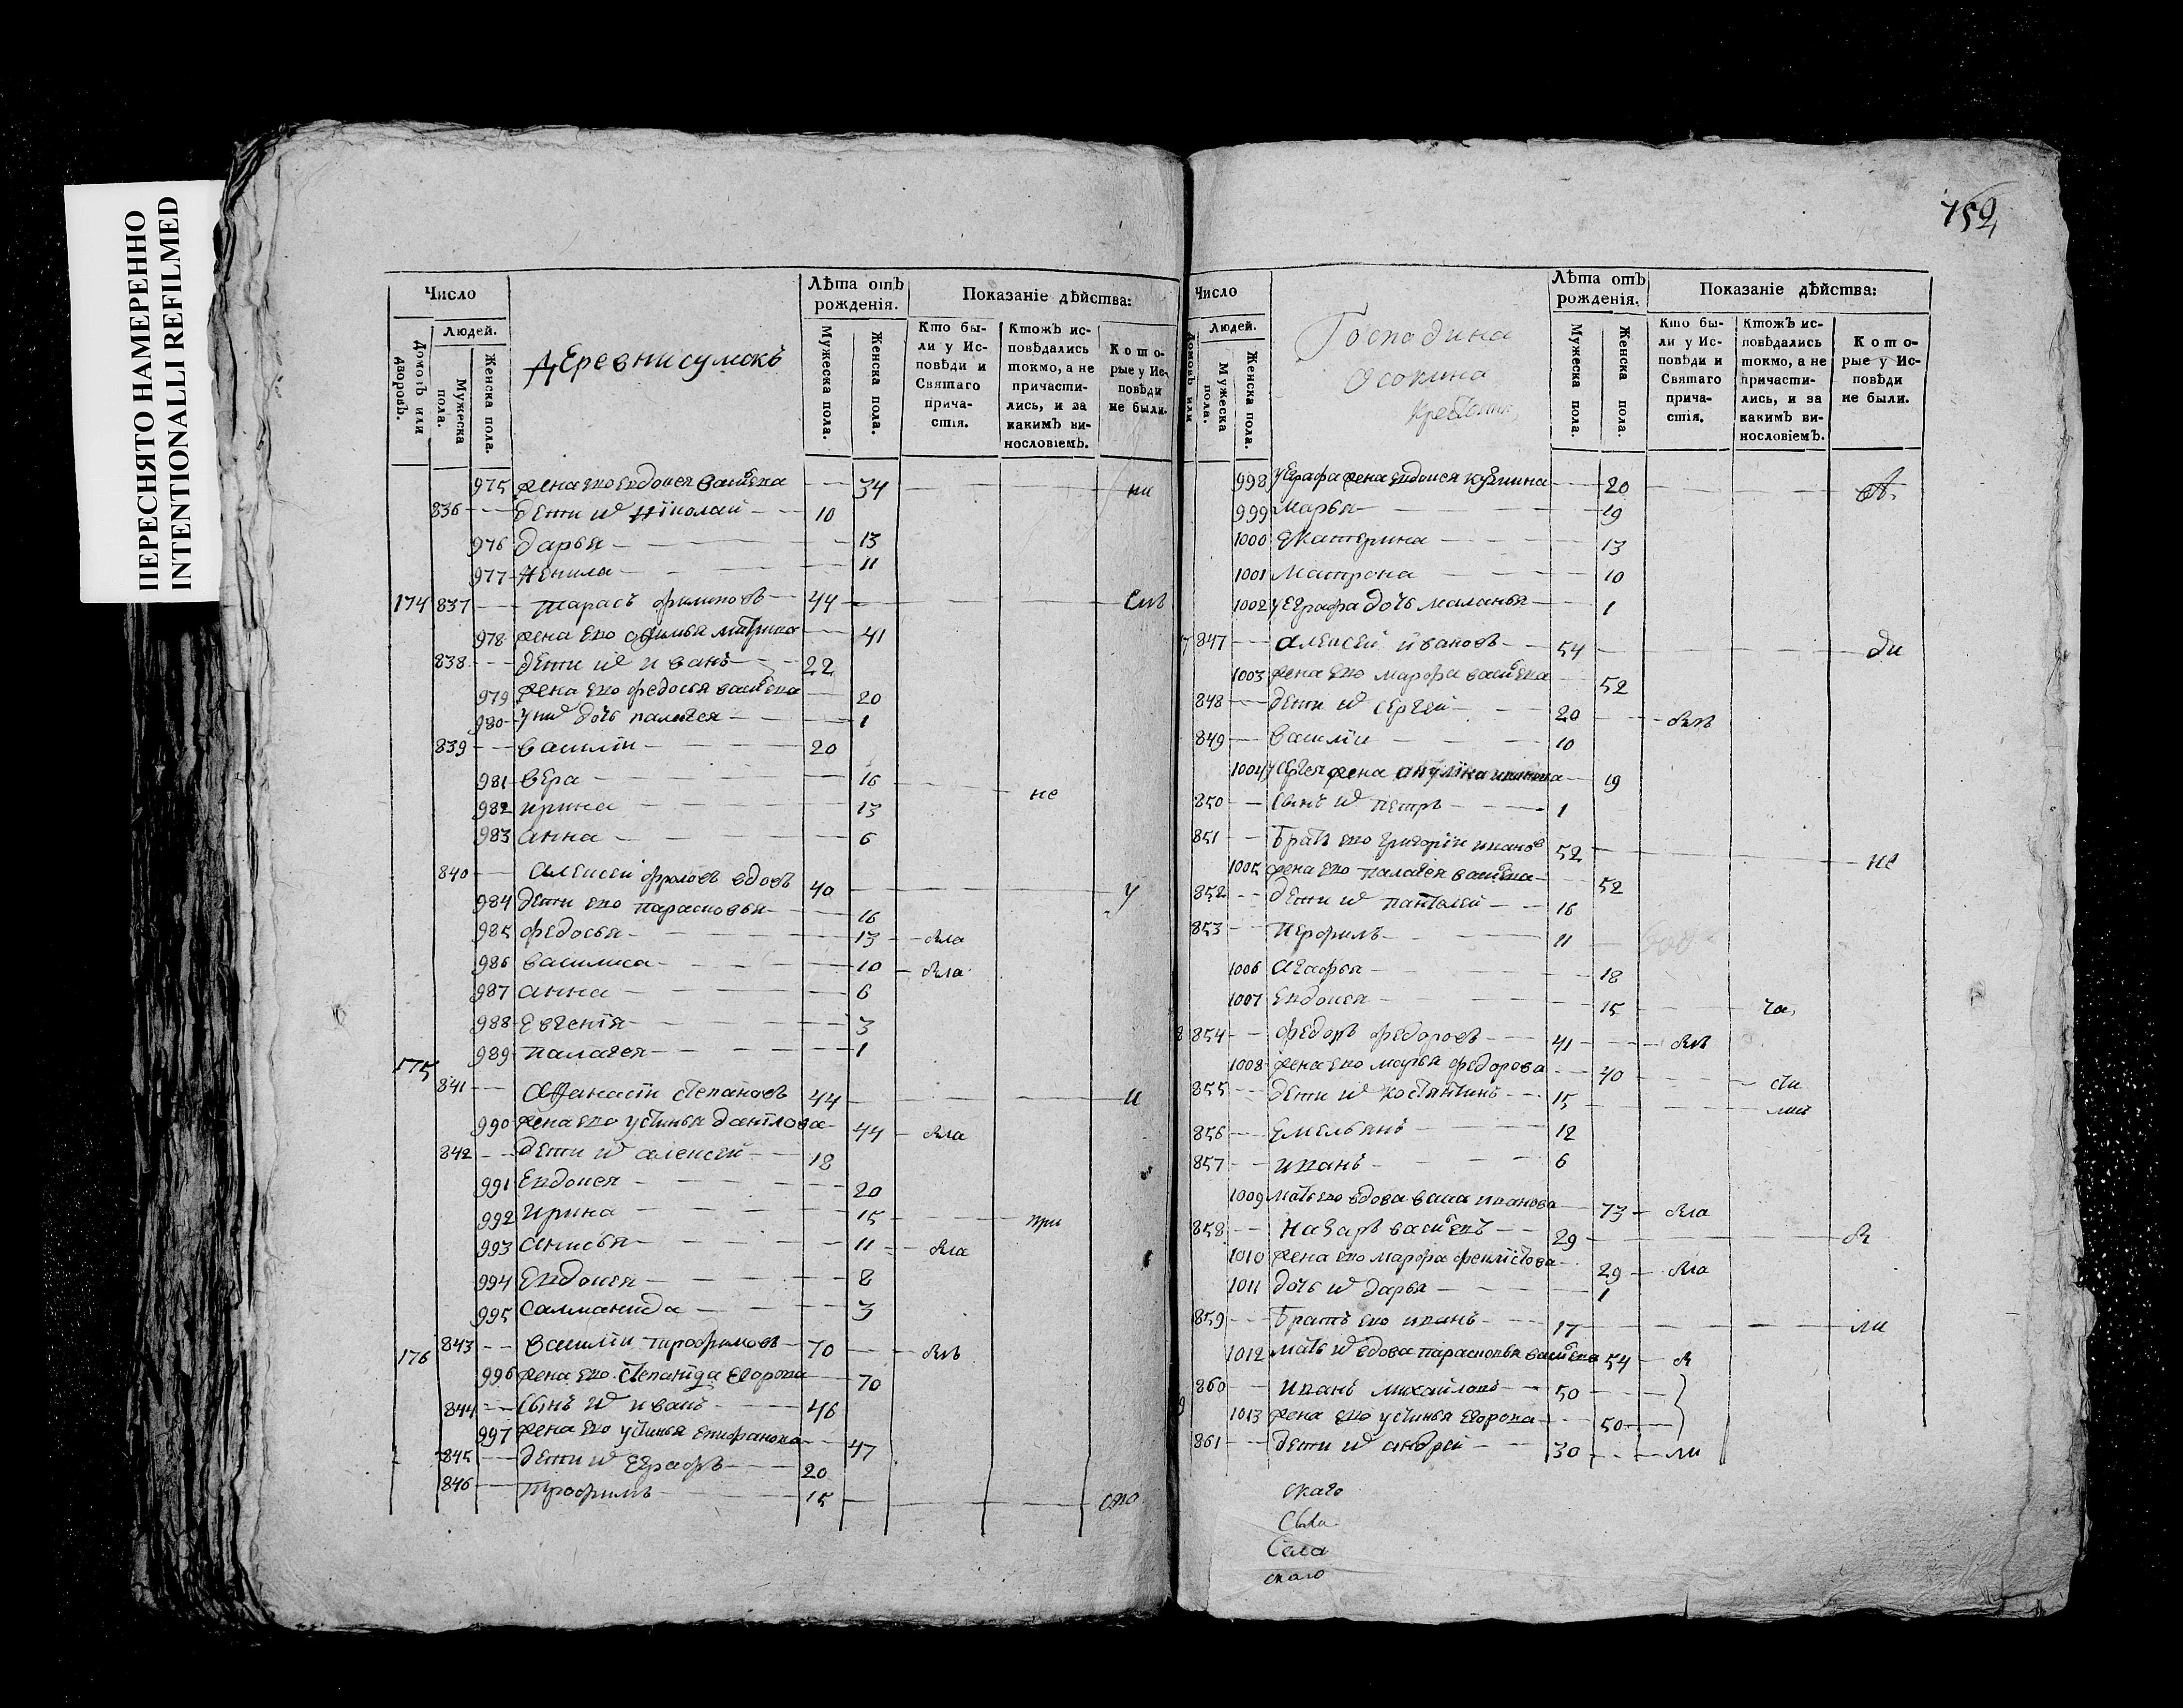 ПЕРЕСНЯТО НАМЕРЕННО
INTENTIONALLI REFILMED
759
Число
Людей.
Домовъ или дворовъ.
Мужеска пола.
Женска пола.
деревни сумскъ
Лѣта отъ рожденія.
Мужеска пола.
Женска пола.
Показаніе дѣйства:
Кто были у Исповѣди и Святаго причастія.
Ктожъ исповѣдались токмо, а не причастились, и за какимъ винословіемъ.
Которые у Исповѣди не были.
975 жена его евдокея 34 ни
836 дети их николай 10
976 дарья 13
977 ненила 11
174 837 тарасъ филиповъ 44
978 жена его 41
838 дети их иванъ 22
979 жена его федосья 20
980 у них дочь палагея 1
839 василіи 20
981 вера 16
982 ирина 13 не
983 анна 6
840 алексеи фроловъ вдовъ 40 у
984 дети его парасковья 16
985 федосья 13 яла
986 василиса 10 яла
987 анна 6
988 евгенія 3
989 палагея 1
175
841 афанасіи степановъ 44 и
990 жена его устинья данілова 44 яла
842 дети их алексей 18
991 евдокея 20
992 ирина 15 при
993 анисья 11 яла
994 евдокея 8
995 саламанида 3
176 843 василіи трофимовъ 70
996 жена его степанида егорова 70
844 сынъ их иванъ 46
997 жена его устинья епифанова 47
845 дети их еграфъ 20
846 трофимъ 15
Число
Людей.
Домовъ или
Мужеска пола.
Женска пола.
Господина
Осокина
Лѣта отъ рожденія.
Мужеска пола.
Женска пола.
Показаніе дѣйства:
Кто были у Исповѣди и Святаго причастія.
Ктожъ исповѣдались токмо, а не причастились, и за какимъ винословіемъ.
Которые у Исповѣди не были.
998 у еграфа жена евдокея кузмина 20
999 марья 19
1000 екатерина 13
1001 матрона 10
1002 у еграфа дочь маланья 1
7 847 алексей ивановъ 54 ди
1003 жена его марфа 52
848 дети их сергей 20
849 василіи 10
1004 у сергея жена 19
850 сынъ их петръ 1
851 братъ его григоріи иванов 52 не
1005 жена его палагея 52
852 дети их пантелей 16
853 перфилъ 11
1006 агафья 18
1007 евдокея 15 ча
8 854 федоръ федоровъ 41
1008 жена его марья федорова 40 сти
855 дети их костянтинъ 15
856 емельянъ 12
857 иванъ 6
1009 мать его вдова иванова 73 яла
858 назаръ 29
1010 жена его марфа 29 яла
1011 дочь их дарья 1
859 братъ его иванъ 17 ли
1012 мать их вдова парасковья 54
9 860 иванъ михайловъ 50
1013 жена его устинья егорова 50
861 дети их андрей 30 ли
скаго
Села
скаго